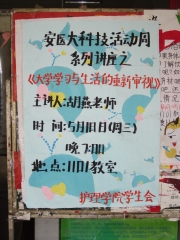 安医大科技活动周
系列讲座之
《大学学习与生活的重新审视》
主讲人:胡燕老师
时间:5月18日(周三)
晚7:00
地点:1101教室
护理学院学生会